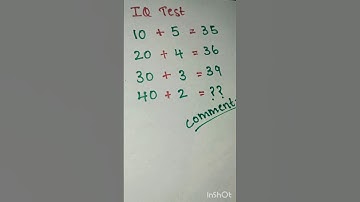 IQ Test
10 + 5 = 35
20 + 4 = 36
30 + 3 = 39
40 + 2 = ??
comment
InShOt